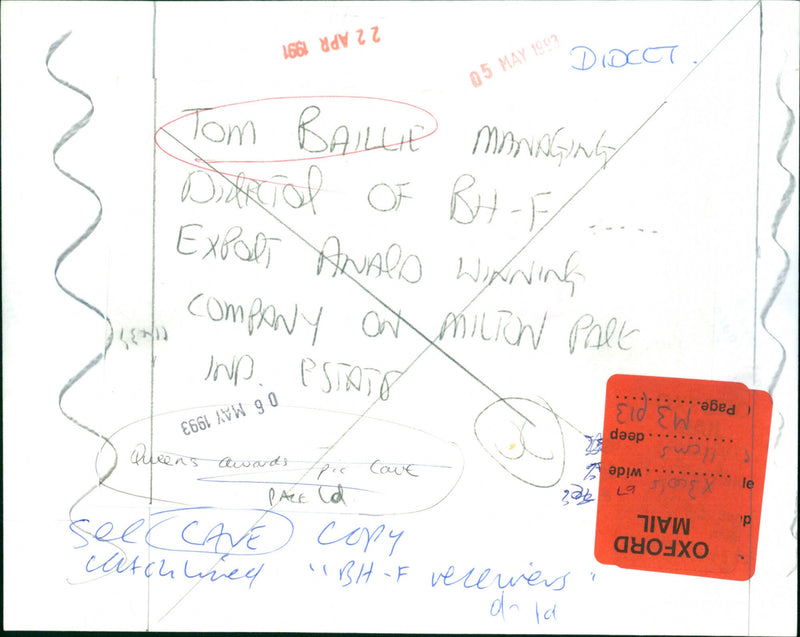 22 APR 1991
05 MAY 1993
DIDCOT.
TOM BAILLIE MANAGING
DIRECTOR OF BH-F .....
EXPORT AWARD WINNING
COMPANY ON MILTON PARK
IND. ESTATE
06 MAY 1993
Queens awards pic Cave
PAGE Ld
See CAVE COPY
catchlined "BH-F receivers"
OXFORD
MAIL
wide
deep
Page M3 p13